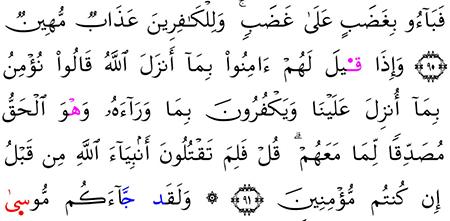 فَبَآءُو بِغَضَبٍ عَلَىٰ غَضَبٍۚ وَلِلْكَٰفِرِينَ عَذَابٌ مُّهِينٌ
﴿٩٠﴾ وَإِذَا قِيلَ لَهُمْ ءَامِنُوا۟ بِمَآ أَنزَلَ ٱللَّهُ قَالُوا۟ نُؤْمِنُ
بِمَآ أُنزِلَ عَلَيْنَا وَيَكْفُرُونَ بِمَا وَرَآءَهُۥ وَهْوَ ٱلْحَقُّ
مُصَدِّقًا لِّمَا مَعَهُمْۗ قُلْ فَلِمَ تَقْتُلُونَ أَنۢبِيَآءَ ٱللَّهِ مِن قَبْلُ
إِن كُنتُم مُّؤْمِنِينَ ﴿٩١﴾ ۞ وَلَقَد جَّآءَكُم مُّوسَىٰ